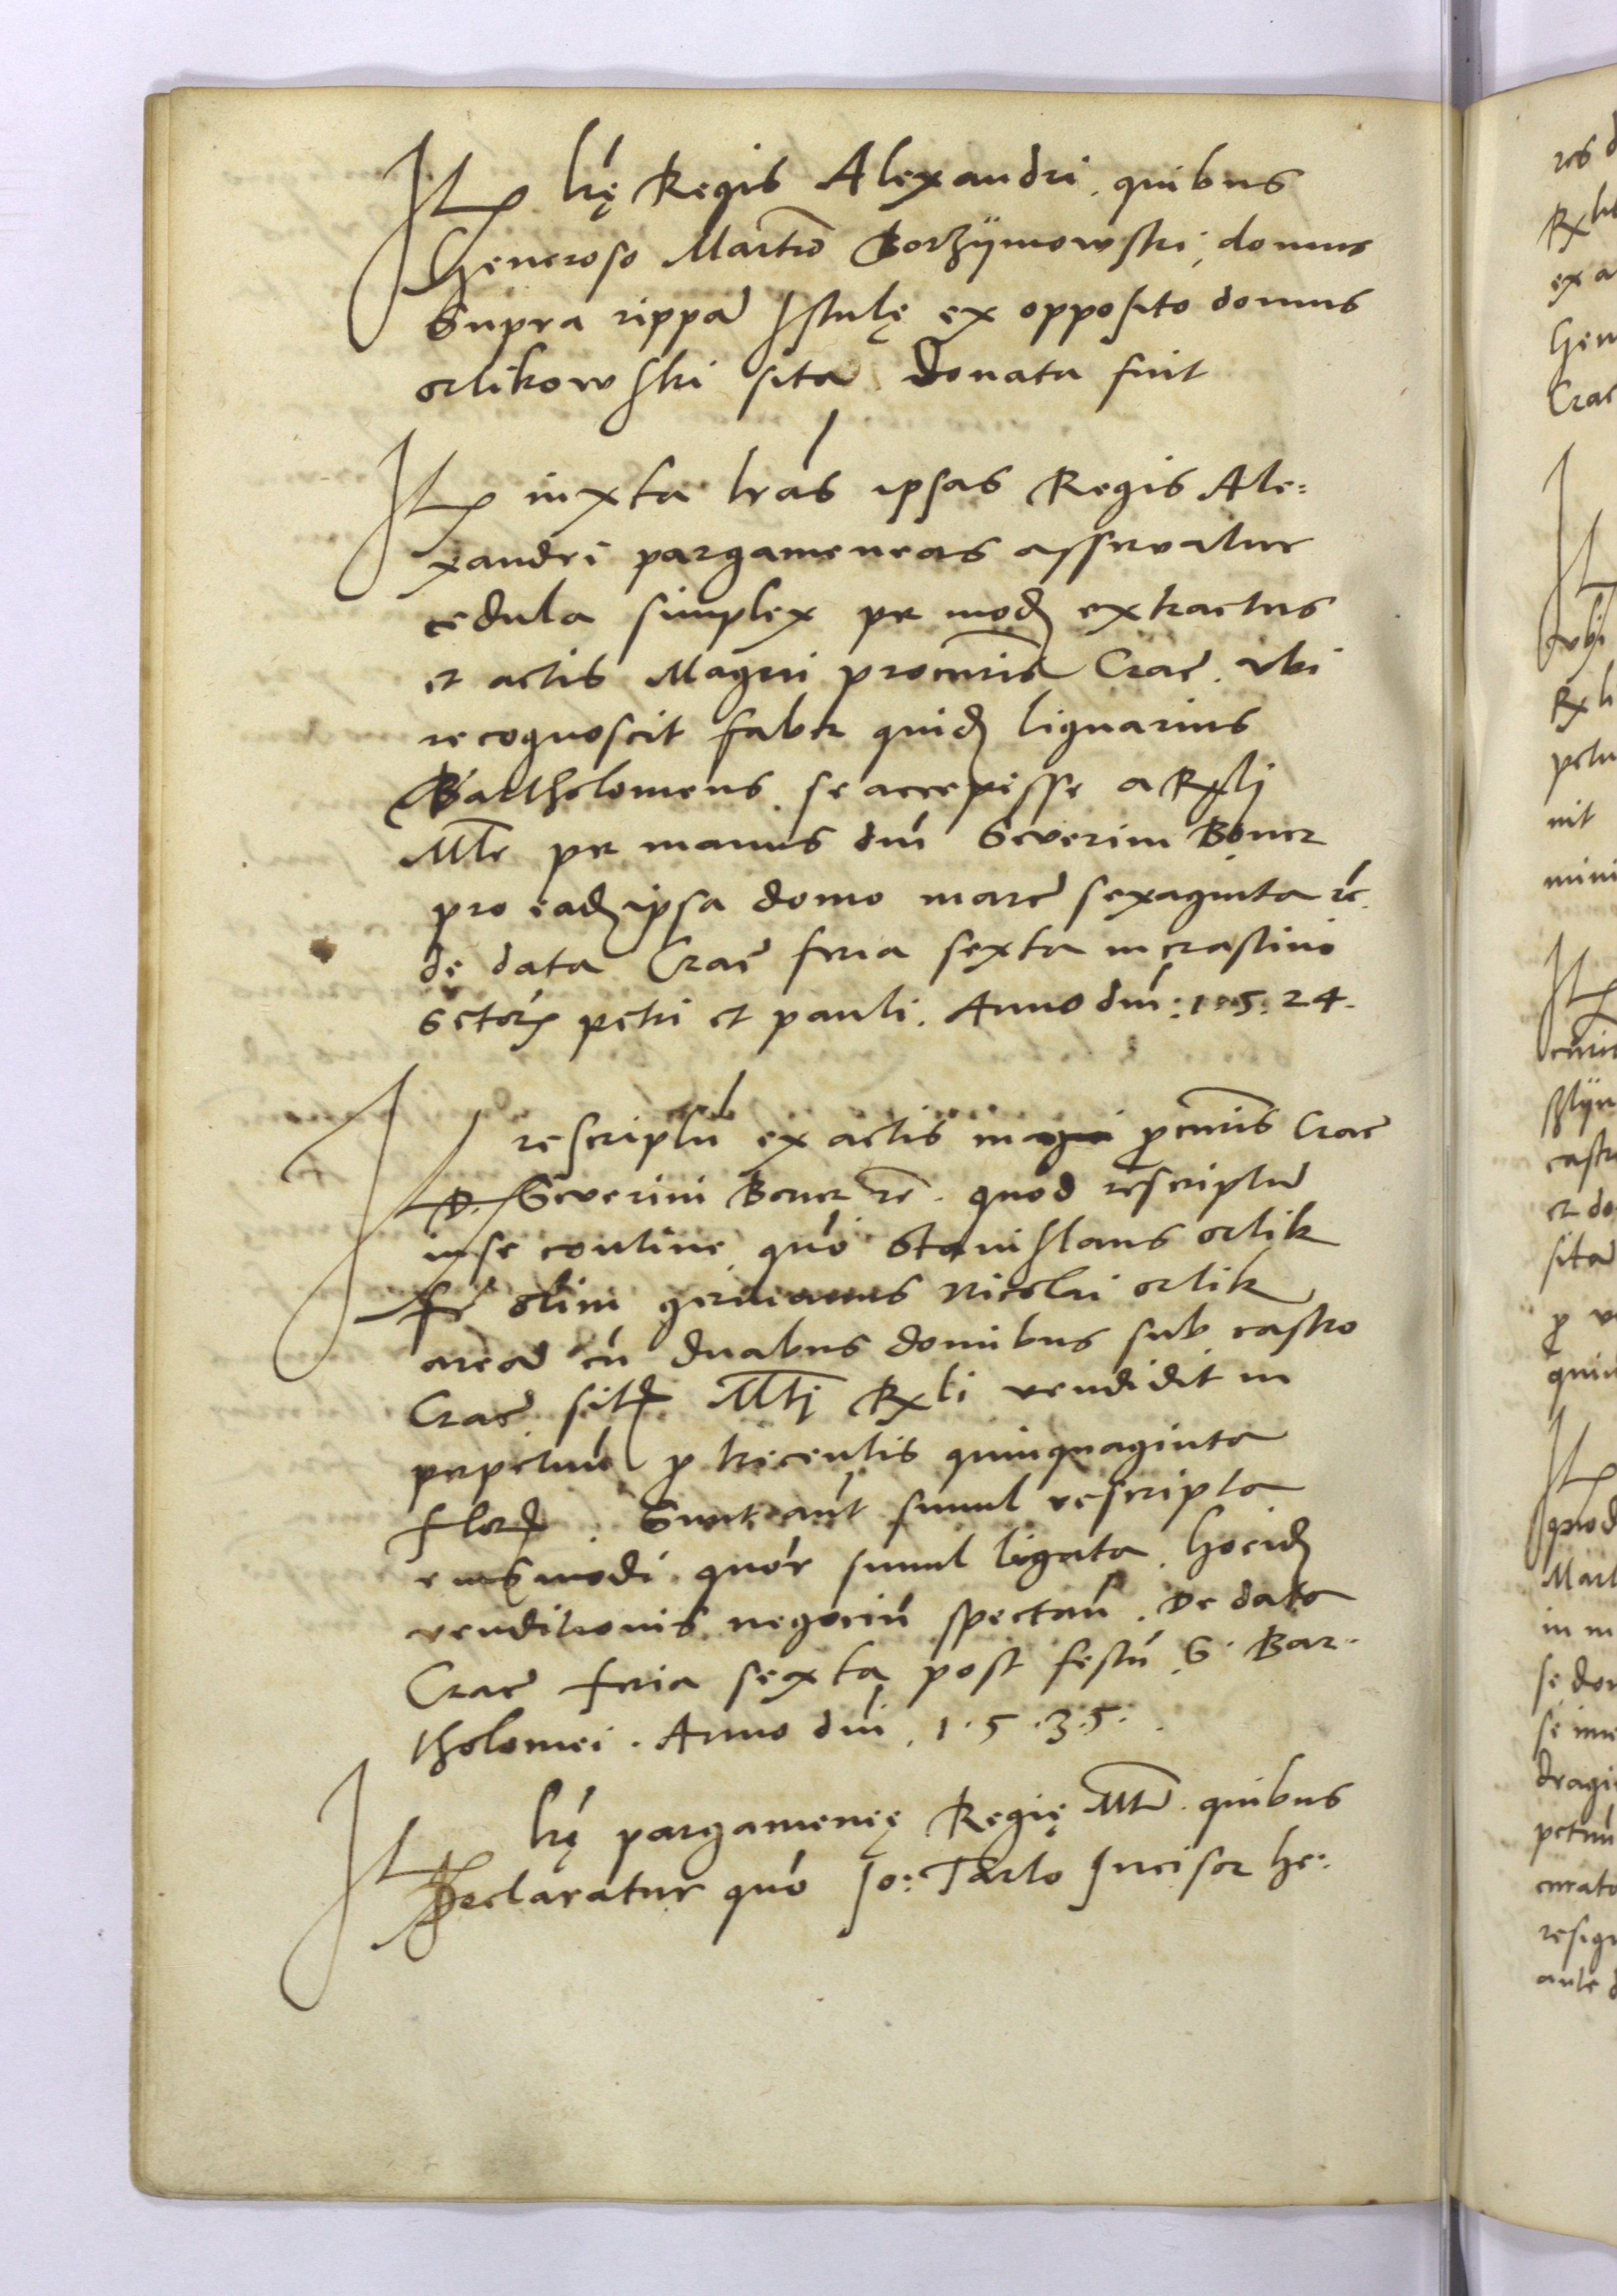 It(em) lrę Regis Alexandri. quibus
Generoso Martīo Borzÿmowski, domus
Supra rippā Istulę ex opposito domus
orlikowski sita donata fuit
It(em) iuxta lras ipsas Regis Ale=
xandri pargameneas asservatur
cedula simplex per modū extractus
et actis Magni procuris Crac̄. ubi
recognoscit faber quidā lignarius
Bartholomeus. se accepisse a Rgli
Mte per manus dni Severini Boner
pro eadē ipsa domo marc̄ sexaginta rc̄.
de data Crac̄ feria sexta in crastino
Sctorū petri et pauli. Anno dni: 1.5.24.
It rescriptū ex actis magni ꝓcuris Crac̄
D. Severini Boner rc̄. quod rescriptū
in se contine. quō Stanislaus orlik
fr̄ olim germanus Nicolai orlik
areā cū duabus domibus sub castro
Crac̄ sitā Mti Rgli vendidit in
perpetuū ꝓ trecentis quinquaginta
flor̄. Sunt aūt simul rescripta
eiusmodi quor simul ligata. hocidē
venditionis negociū spectan̄. De data
Crac̄ feria sexta post festū S. Bar.
tholomei. Anno dni. 1.5.3.5.
It(em) lrę pargamenę Regię Mtis. quibus
Declaratur quō Jo: Tarlo Incisor he: